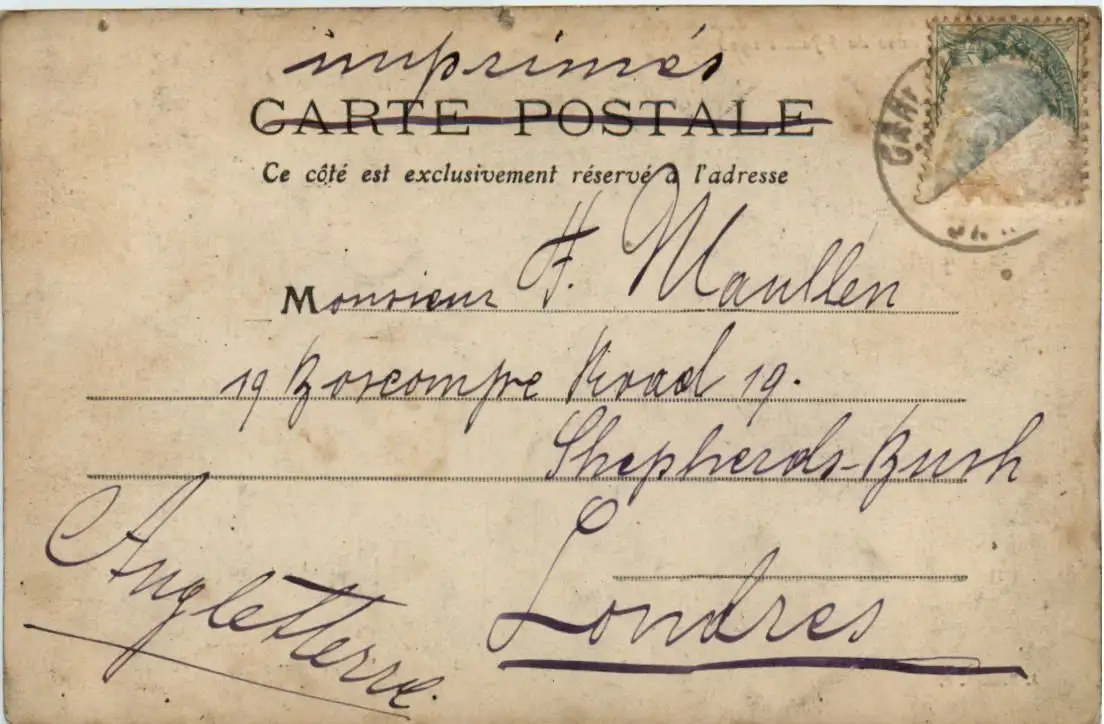 imprimés
CARTE POSTALE
Ce côté est exclusivement réservé à l'adresse
Monsieur H. Maullen
19 Boscompe Road 19.
Shepherds-Bush
Londres
Angleterre.